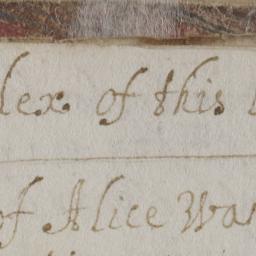 dex of this
of Alice War